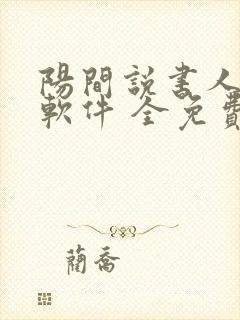 陽間説書人
軟件 全免費
蘭喬